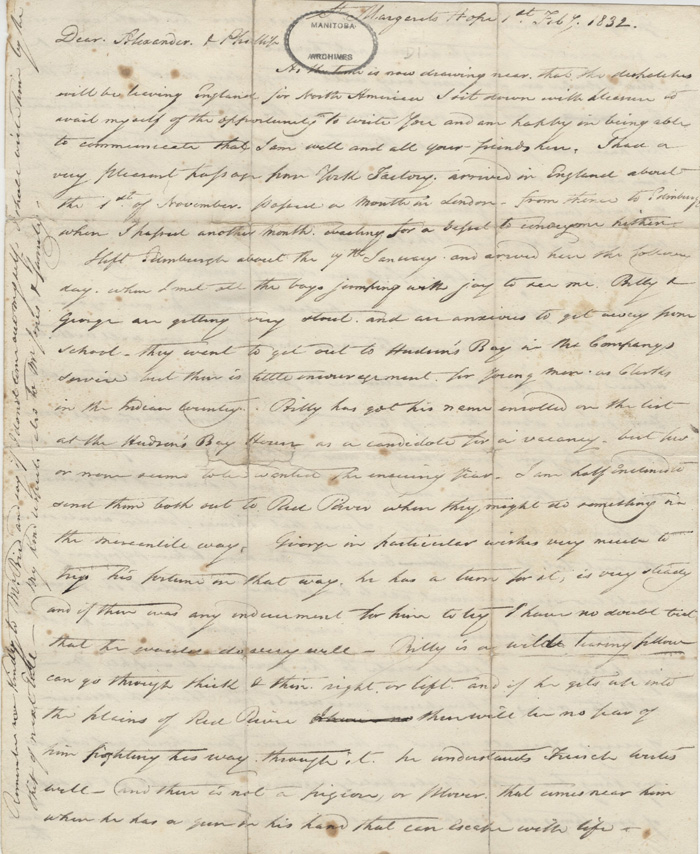 St Margarets Hope 1st Feby. 1832.
MANITOBA
ARCHIVES
Dear Alexander & Phillip
As the time is now drawing near that the dispatches
will be leaving England for North America I sit down with pleasure to
avail myself of the opportunity to write You and am happy in being able
to communicate that I am well and all your friends here. I had a
very pleasant passage from York Factory. arrived in England about
the 1st of November. passed a month in London - from thence to Edinburg
when I passed another month waiting for a Vessel to convey me hither.
I left Edinburgh about the 9th January and arrived here the following
day. when I met all the boys jumping with joy to see me. Billy &
George are getting very stout. and are anxious to get away from
School - they want to get out to Hudson's Bay in the Company's
Service but there is little encouragement for Young men as Clerks
in the Indian Country. Billy has got his name enrolled on the list
at the Hudson's Bay House as a candidate for a vacancy. but few
or none seems to be wanted the ensuing Year - I am half inclined
send them both out to Red River when they might do something in
the mercantile way. George in particular wishes very much to
try his fortune in that way. he has a turn for it, is very steady
and if there was any inducement for him to try I have no doubt but
that he would do very well - Billy is a wild fellow
can go through thick & thin. right or left. and if he gets up into
the plains of Red River there will be no fear of
him fighting his way through it. he understands French writes
well - and there is not a pigeon, or Plover. that comes near him
when he has a gun in his hand that can escape with life -
Remember me kindly to Mr Bird and say I shall write him by the
Ship of next - My kind to Mr Jones & family